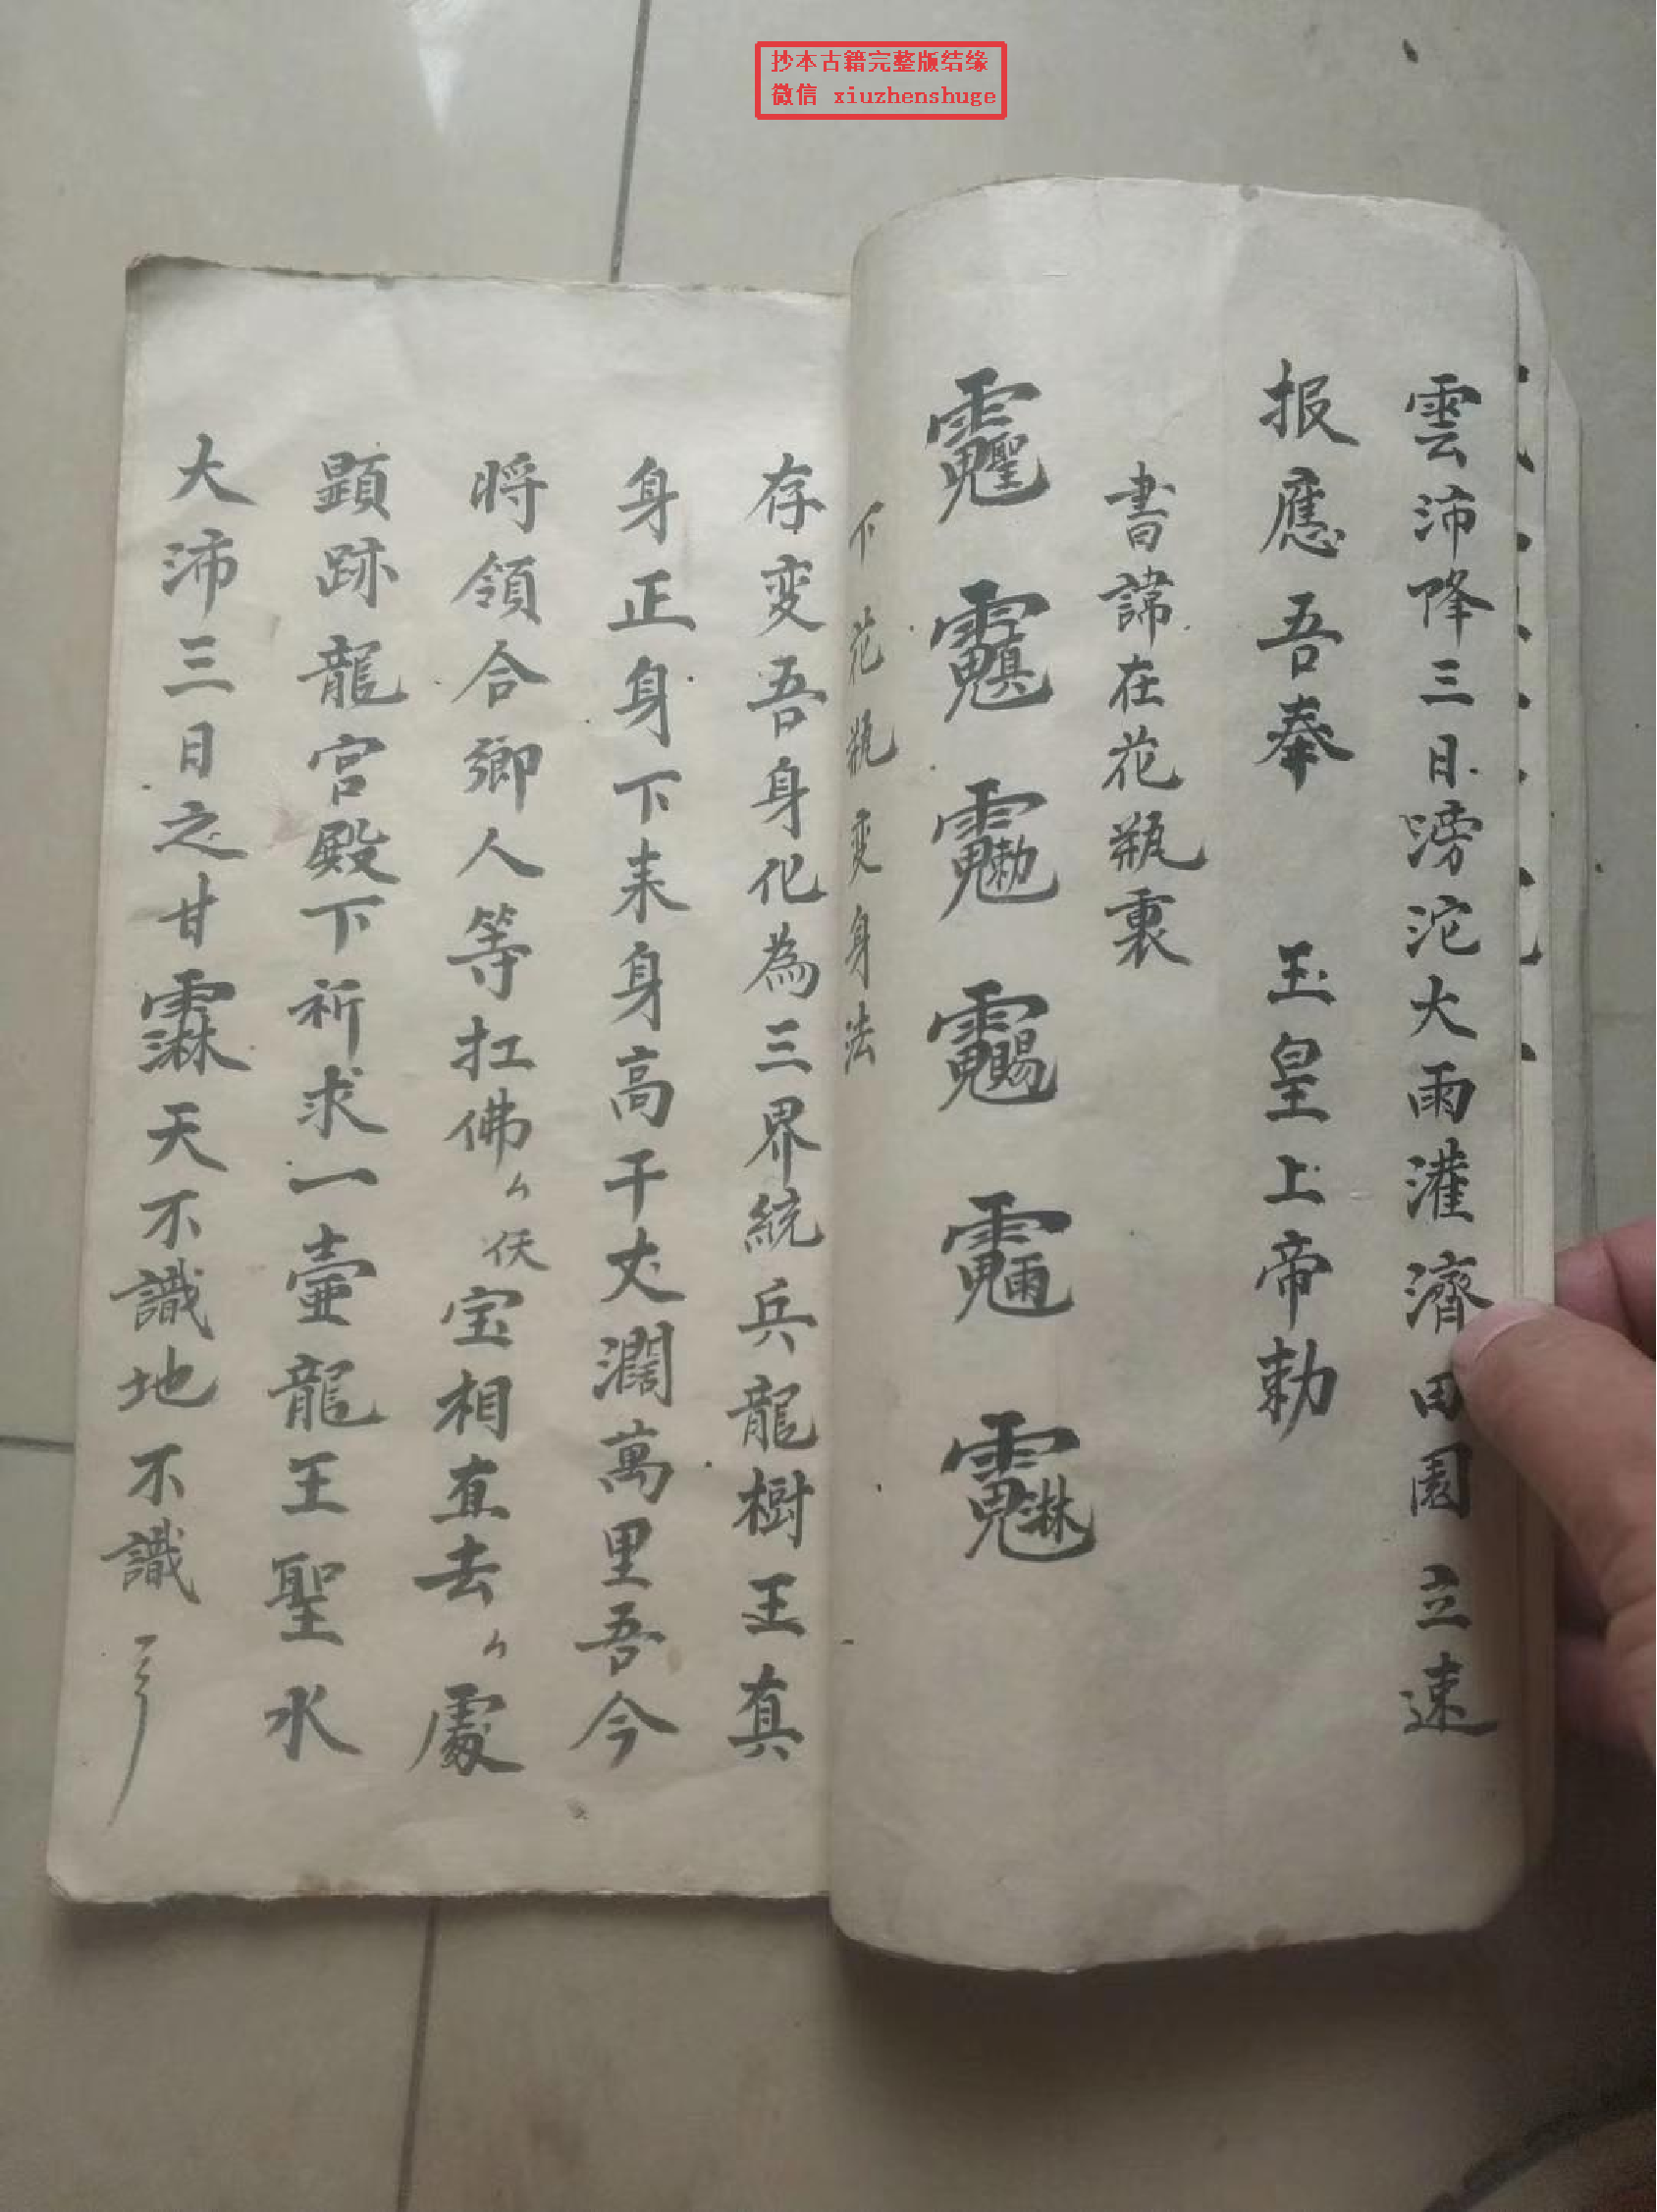 抄本古籍完整版结缘
微信 xiuzhenshuge
雲沛降三日滂沱大雨灌濟田園立速
报應吾奉 玉皇上帝勅
書諱在花瓶裏
下花瓶变身法
存变吾身化為三界統兵龍樹王真
身正身下来身高千丈濶萬里吾今
將領合鄉人等扛佛々伏宝相直去々處
顕跡龍宮殿下祈求一壷龍王聖水
大沛三日之甘霖天不識地不識